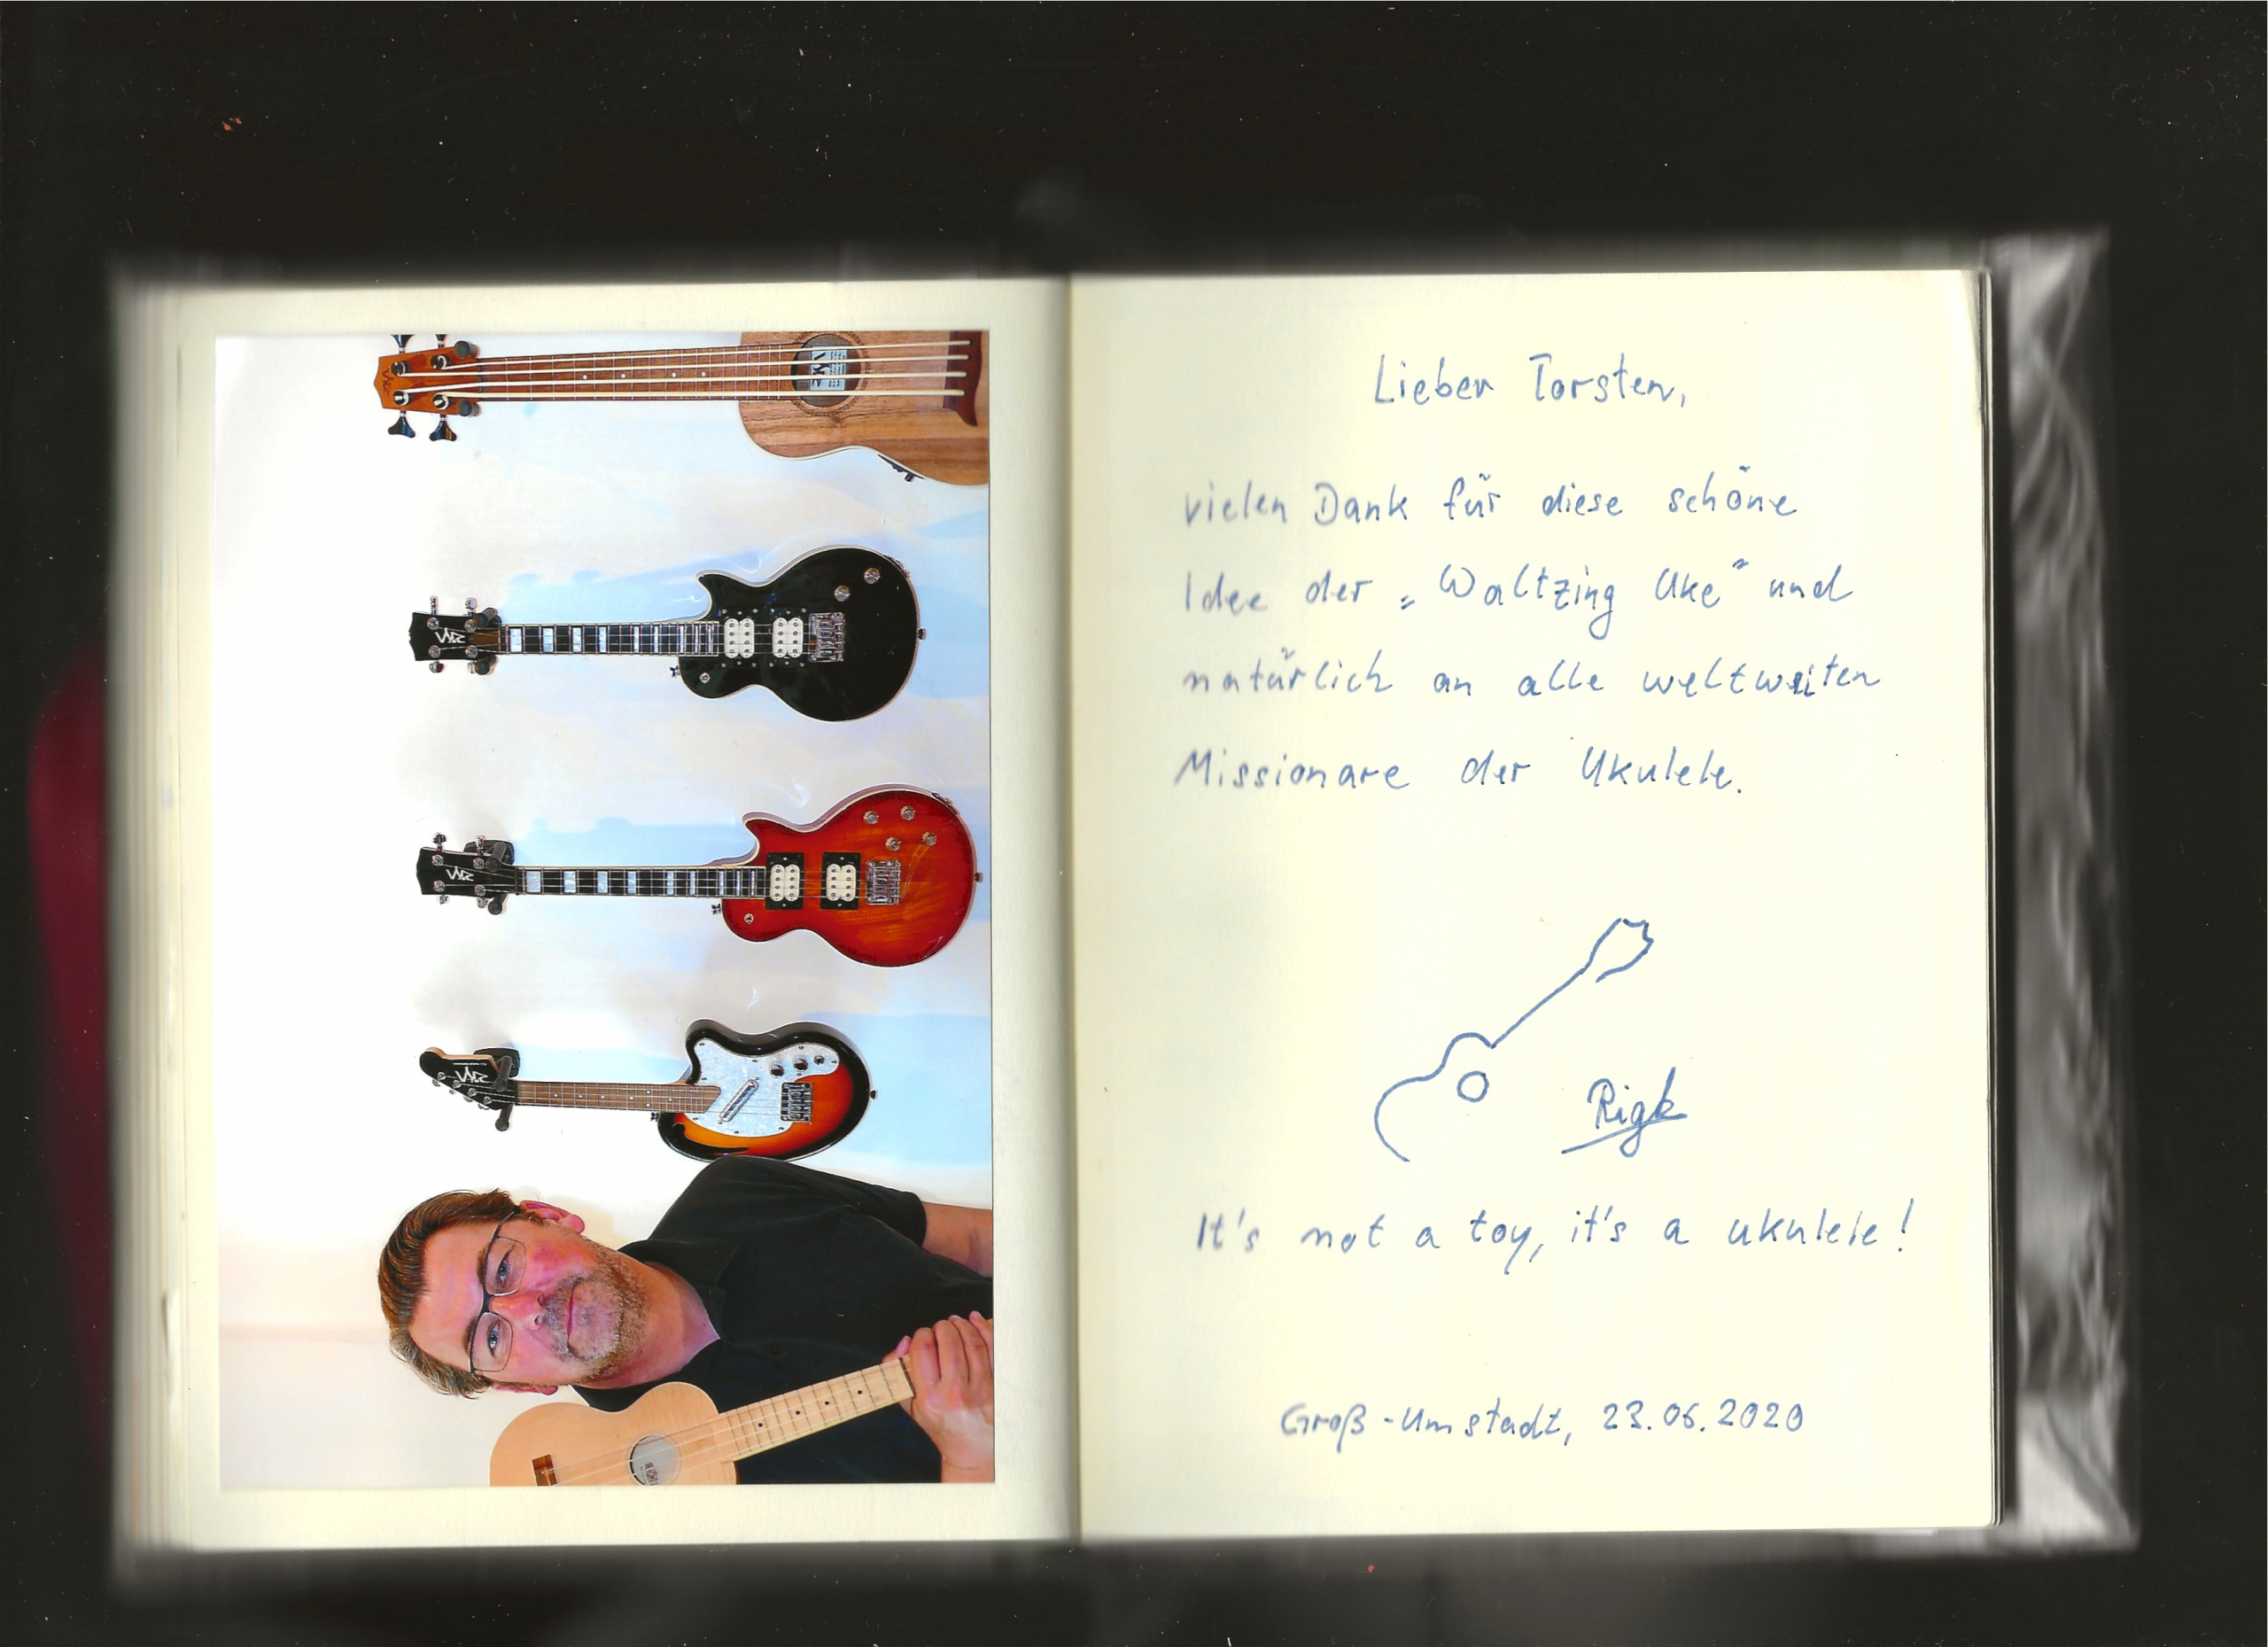 Lieber Torsten,
vielen Dank für diese schöne
Idee der „Waltzing Uke“ und
natürlich an alle weltweiten
Missionare der Ukulele.
Rigk
It's not a toy, it's a ukulele!
Groß-Umstadt, 23.06.2020